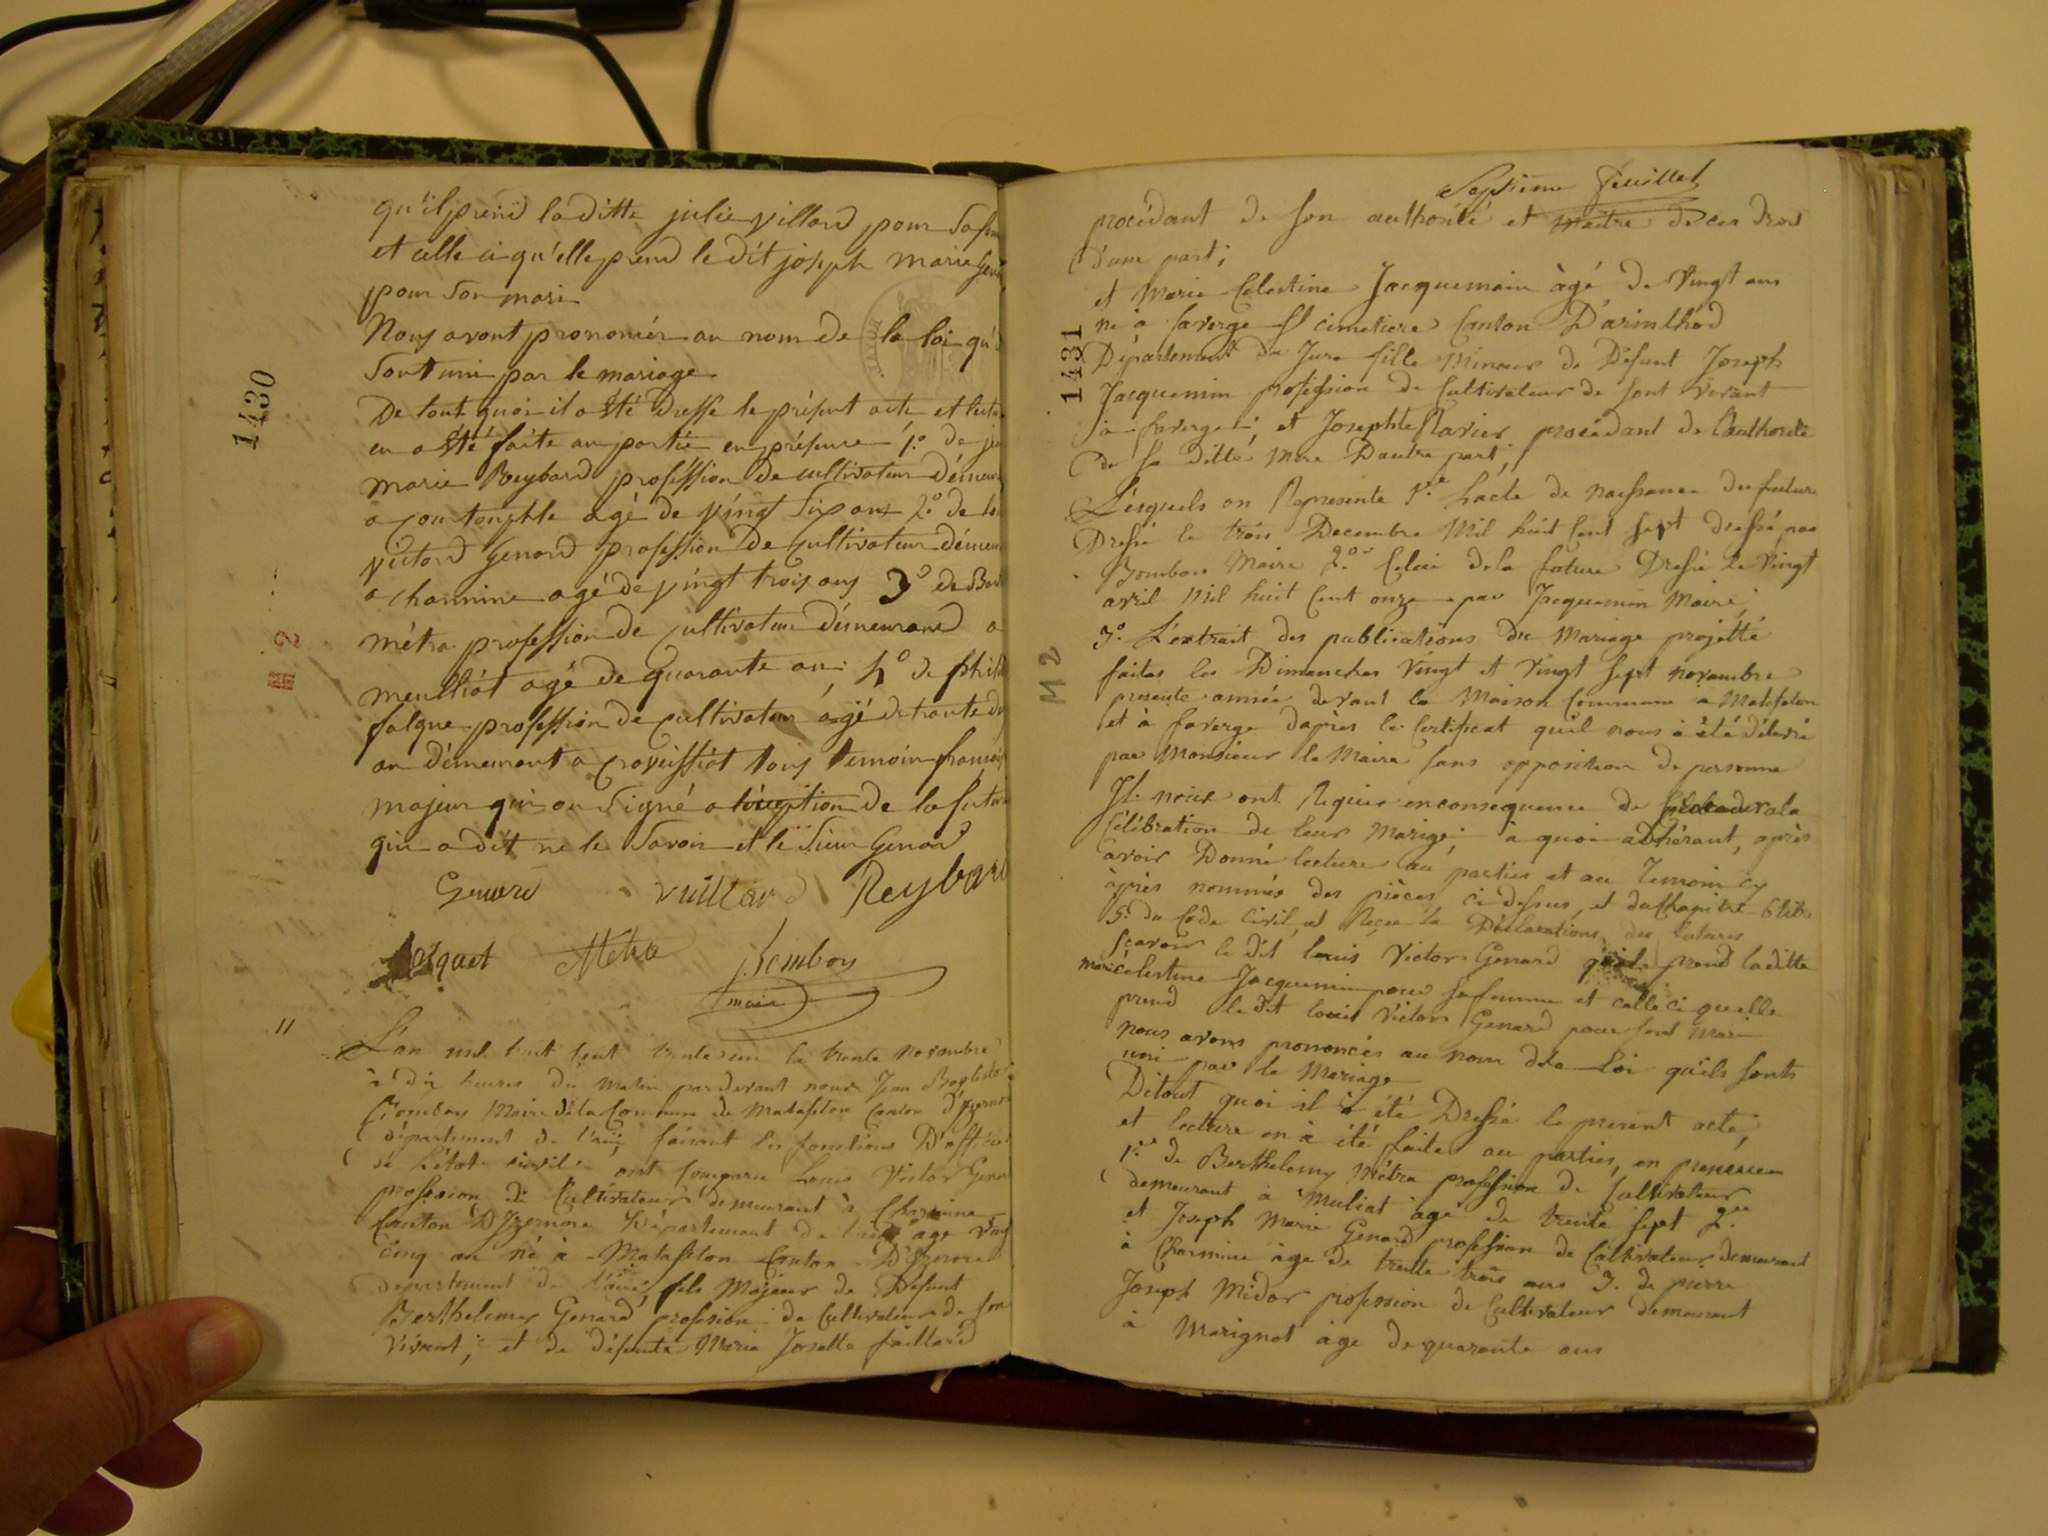 1430
qu'il prend laditte julie villard pour sa
et celle ci qu'elle prend le dit joseph marie
pour son mari
Nous avont prononcér au nom de la loi
sont uni par le mariage
De tout quoi il a été dressé le présent acte et
en a été faite au partie en présence 1.º de
marie Reybard profession de cultivateur
a agé de vingt six ans 2º de
victord Genard profession de cultivateur
a charmine agé de vingt trois ans 3º de
métra profession de cultivateur démeurand a
meulliat agé de quarante an: 4º de
falque profession de cultivateur agé de trante
an démeurant a tous témoin
majeur qui on signé a de la
qui a dit ne le savoir et le sieur Genard
Genard vuillard Reybard
Métra
maire
11
L'an mil huit cent trente un le trente novembre
à dix heures du matin par devant nous Jean
Maire de la Commune de Matafelon Canton
département de l'ain, faisant les fonctions D'officier
de L'état civil ont comparu Louis Victor
profession de Cultivateur demeurant à Charmine
Canton D'Izernore Département de age
cinq an né à Matafelon Canton D'Izernore
departement de fils Majeur de Défunt
Berthelemy Genard profession de Cultivateur de son
vivant, et de défunte Marie Josette faillard
M 2
Septième feuillet
procédant de son authorité et maitre de ces droit
d'une part,
et Marie Celestine Jacquemain àgé de vingt ans
né à faverge St cimetiere Canton D'arinthod
Département du Jura fille Mineur de Défunt Joseph
Jacquemin profession de Cultivateur de sont vivant
à faverge et Josephte procédant de l'authorité
de sa ditte Mere D'autre part,
Lesquels on Représenté 1.º lacte de naissance du future
Dressé le trois Decembre mil huit cent sept dressé par
Maire 2.º Celui de la future Dressé le vingt
avril mil huit cent onze par Jacquemin Maire,
3.º L'extrait des publications du Mariage projetté
faites les Dimanches vingt et vingt sept novembre
presente année devant la Maison Commune a Matafelon
et à faverge d'après le certificat quil nous à été délivré
par Monsieur le Maire sans opposition de personne
Il nous ont Requis en consequence de
Célébration de leur Mariage, à quoi adhérant, après
avoir Donné lecture au parties et au Temoin cy
après nommés des pièces ci dessus, et du chapitre
5.º du Code Civil, et Reçu la Déclarations des futures
sçavoir le dit Louis Victor Genard quil prend laditte
marie célestine Jacquemin pour sa femme et celle ci quelle
prend le dit Louis Victor Genard pour sont mari
nous avons prononcés au nom de la Loi quils sonts
uni par le Mariage
De tout quoi il à été Dressé le present acte,
et lecture en à été faite au parties, en presence
1.º de Berthelemy Métra profession de Cultivateur
demeurant à Muliat age de trente sept 2.º
et Joseph Marie Genard profession de Cultivateur demeurant
à Charmine àge de trente trois ans 3. de pierre
Joseph Midor profession de Cultivateur demeurant
à Marignat àge de quarante ans
1431
M 2